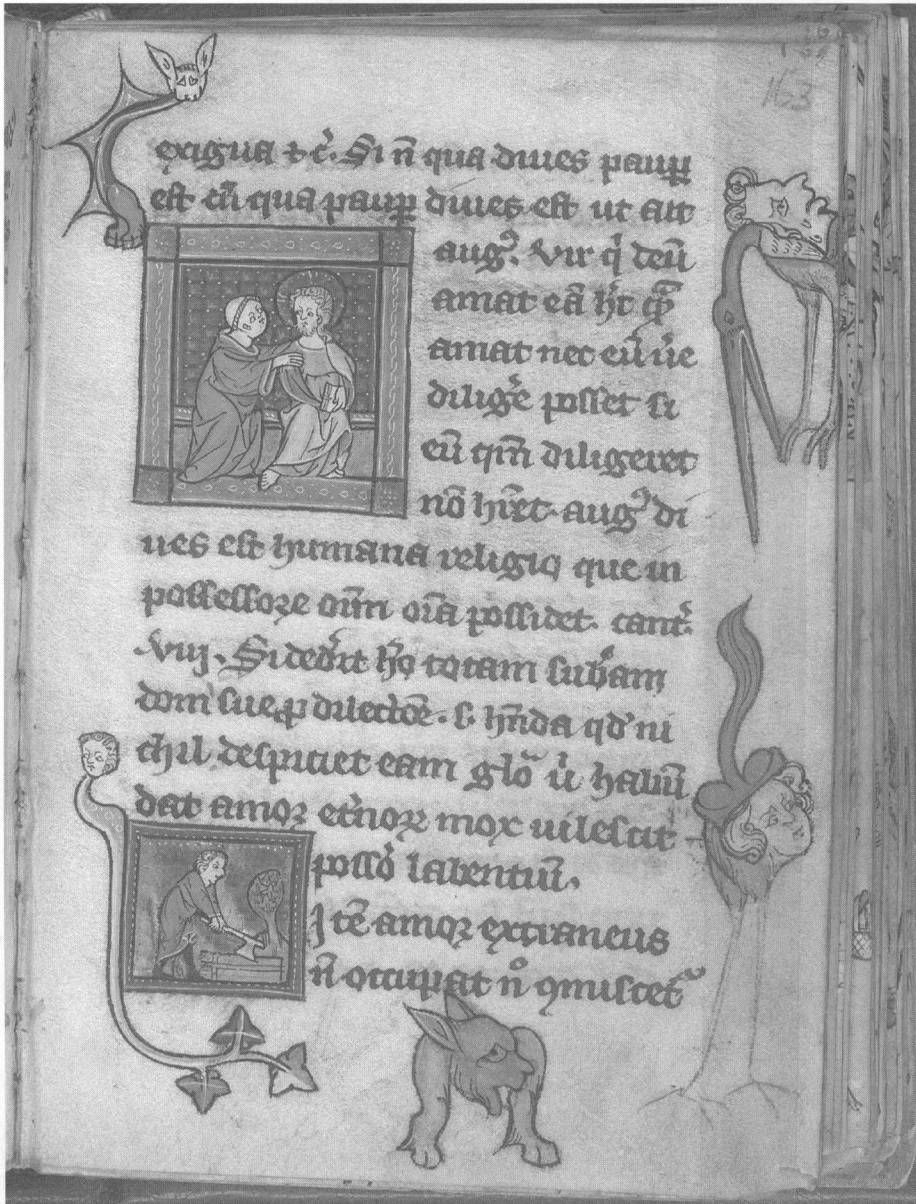 163
exigua ⁊ c̄. Si n̄ qua diues paup̲
est cū qua paup̲ diues est ut ait
aug⁹. Vir q̇ deū
amat eā
amat nec eū ue̅
dilig̅e posset si
eū diligeret
nō hr̄et. aug⁹ di
ues est humana religio que in
possessore om̄i oīa possidet. cant̄.
viij. Si ded̄it hō totam sub̄am
dom̄ sue ꝓ dilectōe. s. hn̄da qd' ni
chil despiciet eam glō
dat amor et̄noꝝ mox uilescit
possō labentiū.
Itē amor extraneus
n̄ occupat n̊